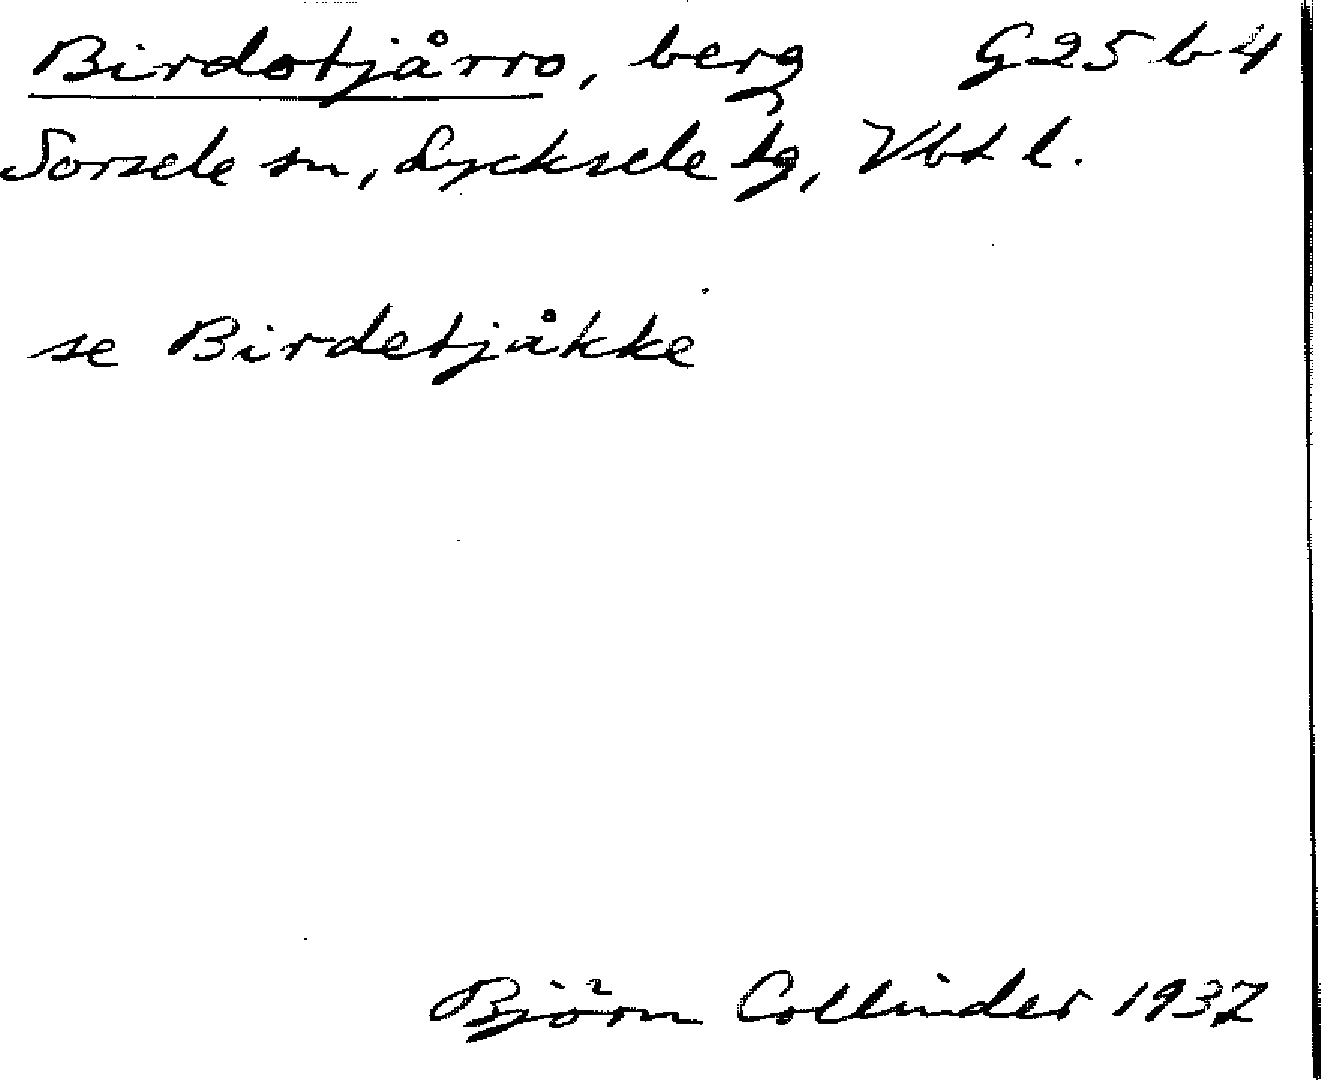 Birdotjårro, berg G25b4
Sorsele sn, Lycksele tg, Vbt l.
se Birdetjåkke
Björn Collinder 1937